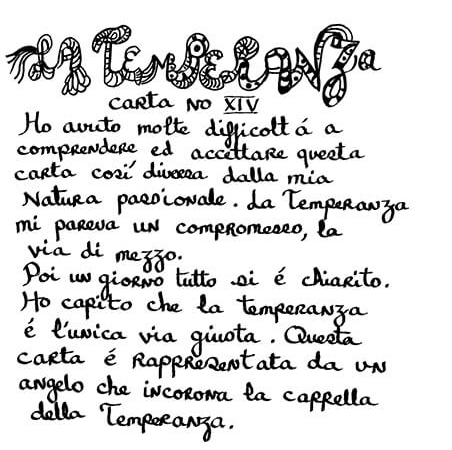 La Temperanza
CARTA NO XIV
Ho avuto molte difficoltá a
comprendere ed accettare questa
carta cosí diversa dalla mia
Natura passionale. La Temperanza
mi pareva un compromesso, la
via di mezzo.
Poi un giorno tutto si é chiarito.
Ho capito che la temperanza
é l'unica via giusta. Questa
carta é rappresentata da un
angelo che incorona la cappella
della Temperanza.